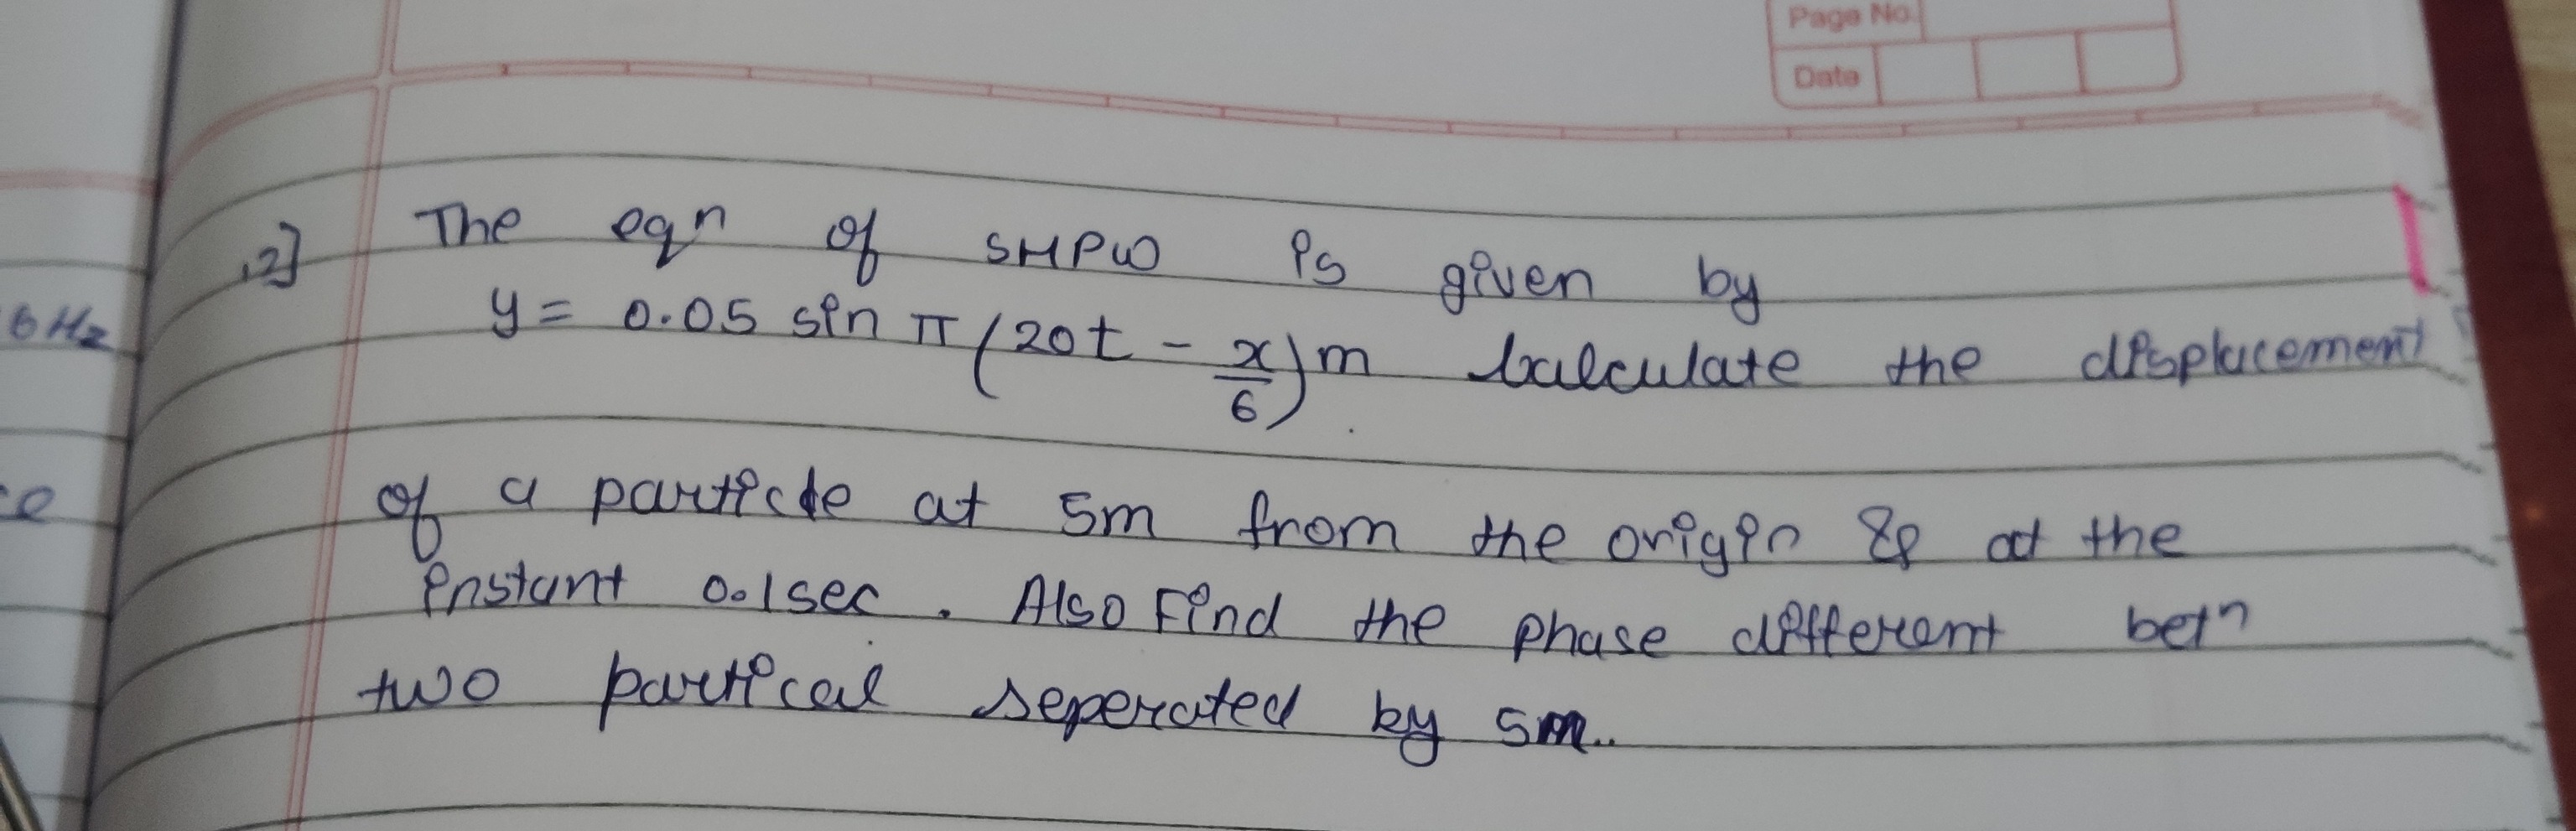 Page No.
Date
2] The eqn of SHPW is given by
y = 0.05 sin π (20t - x/6) m Calculate the displacement
of a particle at 5m from the origin & at the
instant 0.1sec. Also Find the phase different betn
two partical seperated by 5m..
6 Hz